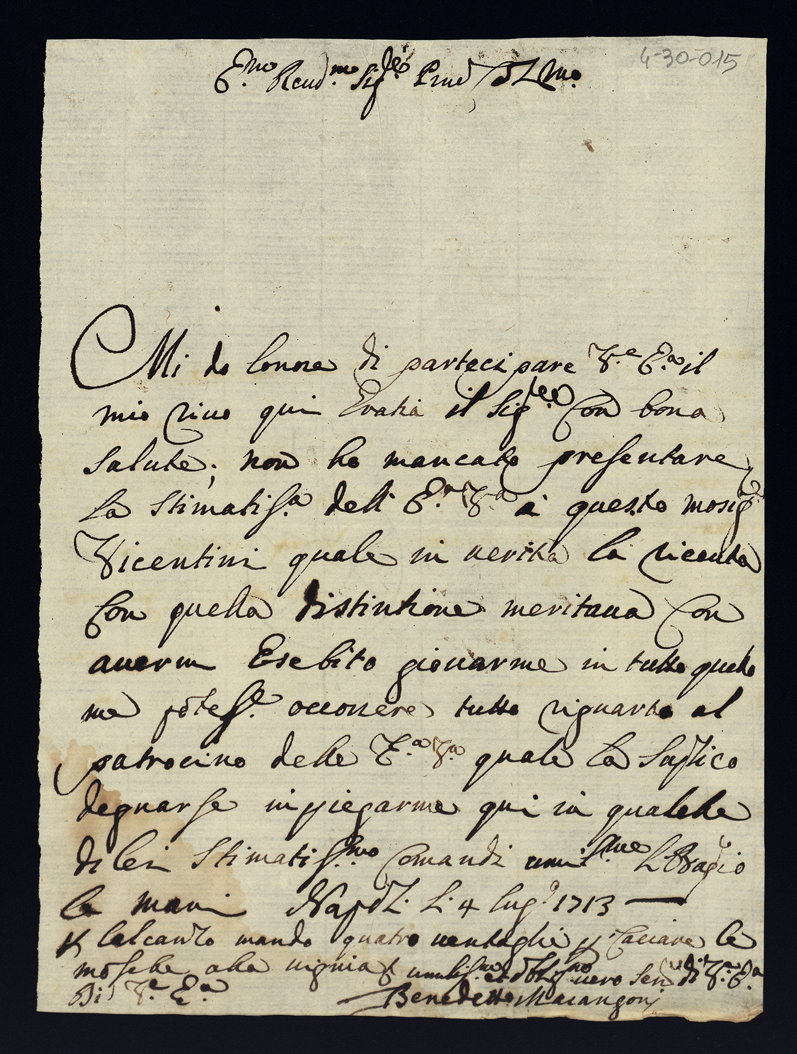 4-30-015
E.mo Reud.mo Sig.re Prne
Mi do lonore di partecipare V.e E.a il
mio rivo qui Gratia il Sig.re Con bona
Salute; non ho mancato presentare
La Stimatis.a dell E.a V.a a questo mosig.
Vicentini quale in uerita la riceuta
Con quella distintione meritaua Con
auerm Esebito giouarme in tutto quello
me potess. occorrere tutto riguarto al
patrocino delle E.a V.a quale La Suplico
degnarse inpiegarme qui in qualche
di lei Stimatiss.mo Comandi umil.me L Bagio
le mani Napol. L. 4 lug.o 1713
quatro uentaglie p Caciare le
mosche alla uignia umiliss.mo et obblig.mo uero Ser.e di V.a E.a
Di V.a E.a
Benedetto Marangoni